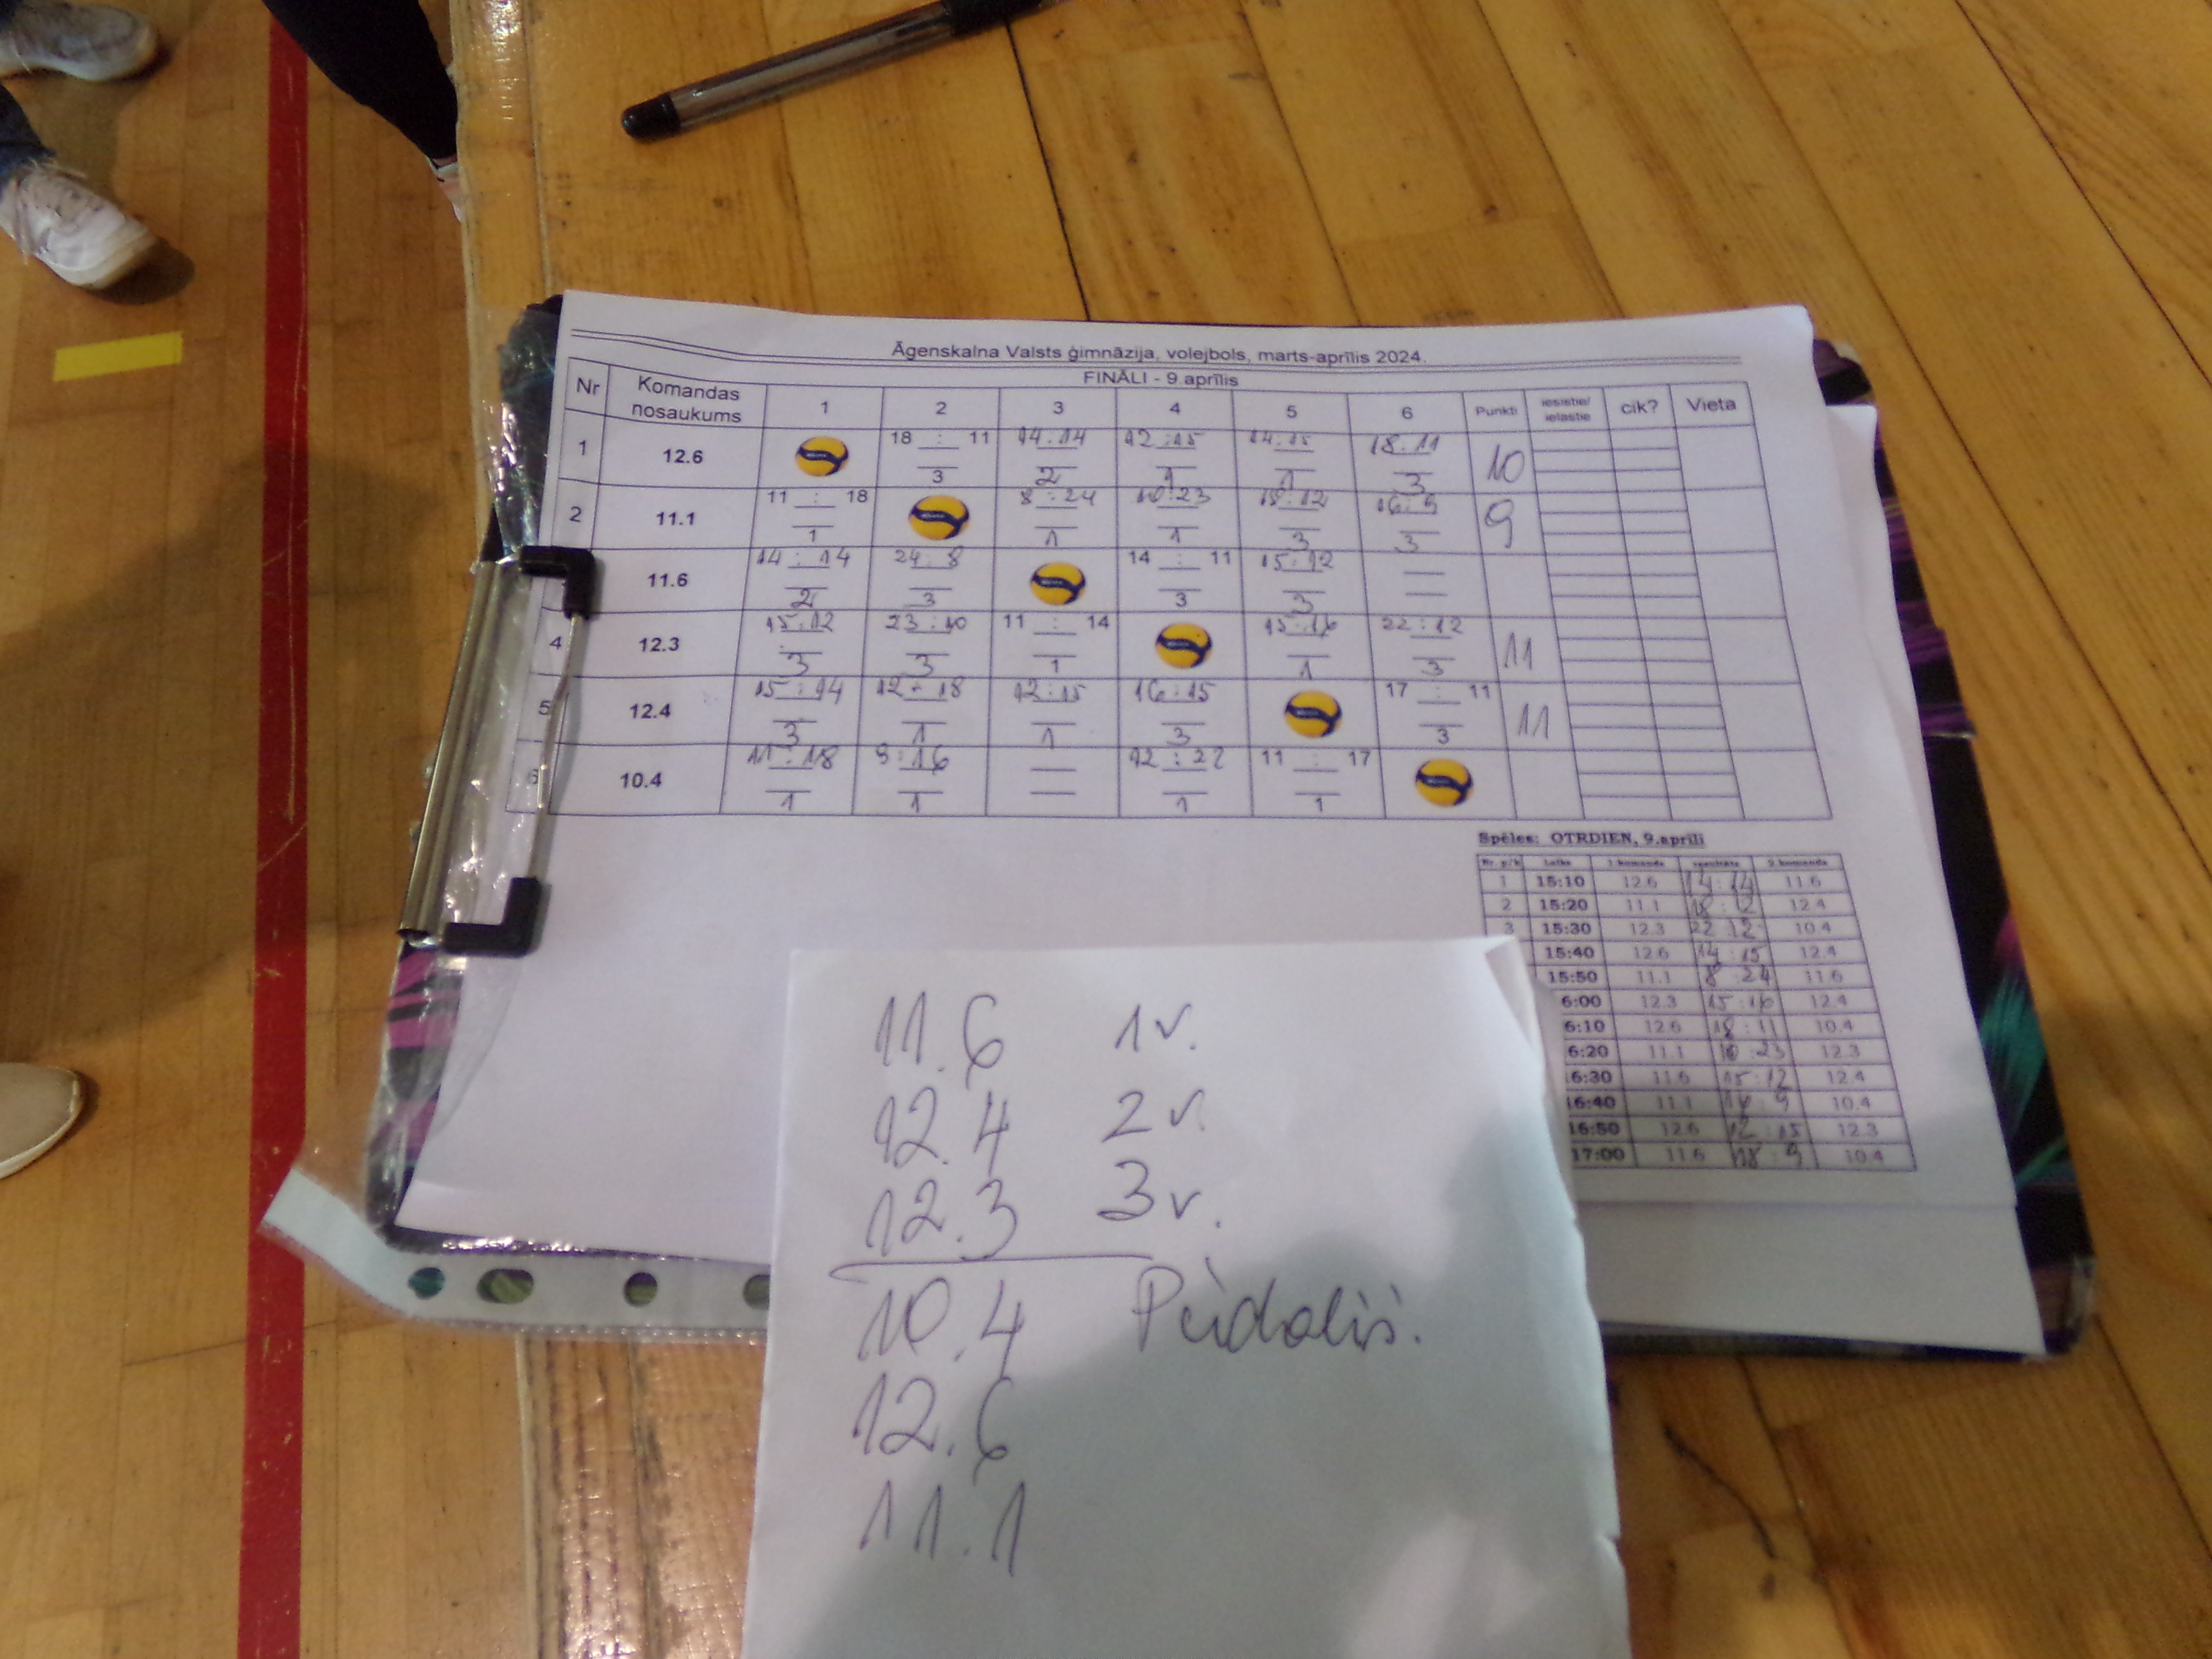 Āgenskalna Valsts ģimnāzija, volejbols, marts-aprīlis 2024.
FINĀLI - 9.aprīlis
Nr Komandas nosaukums 1 2 3 4 5 6 Punkti iesistie/ ielaistie cik? Vieta
1 12.6 18 : 11 3 14:14 2 12:15 1 14:15 1 18:11 3 10
2 11.1 11 : 18 1 8:24 1 10:23 1 18:12 3 16:9 3 9
11.6 14:14 2 24:8 3 14 : 11 3 15:12 3
4 12.3 15:12 3 23:10 3 11 : 14 1 15:16 1 22:12 3 11
5 12.4 15:14 3 12:18 1 12:15 1 16:15 3 17 : 11 3 11
6 10.4 11:18 1 9:16 1 12:22 1 11 : 17 1
Spēles: OTRDIEN, 9.aprīlī
Nr. p/k Laiks 1 komanda rezultāts 2 komanda
1 15:10 12.6 14:14 11.6
2 15:20 11.1 18:12 12.4
3 15:30 12.3 22:12 10.4
15:40 12.6 14:15 12.4
15:50 11.1 8:24 11.6
6:00 12.3 15:16 12.4
6:10 12.6 18:11 10.4
6:20 11.1 10:23 12.3
16:30 11.6 15:12 12.4
16:40 11.1 16:9 10.4
16:50 12.6 12:15 12.3
17:00 11.6 18:9 10.4
11.6 1v.
12.4 2v.
12.3 3v.
10.4 Piedalīs.
12.6
11.1